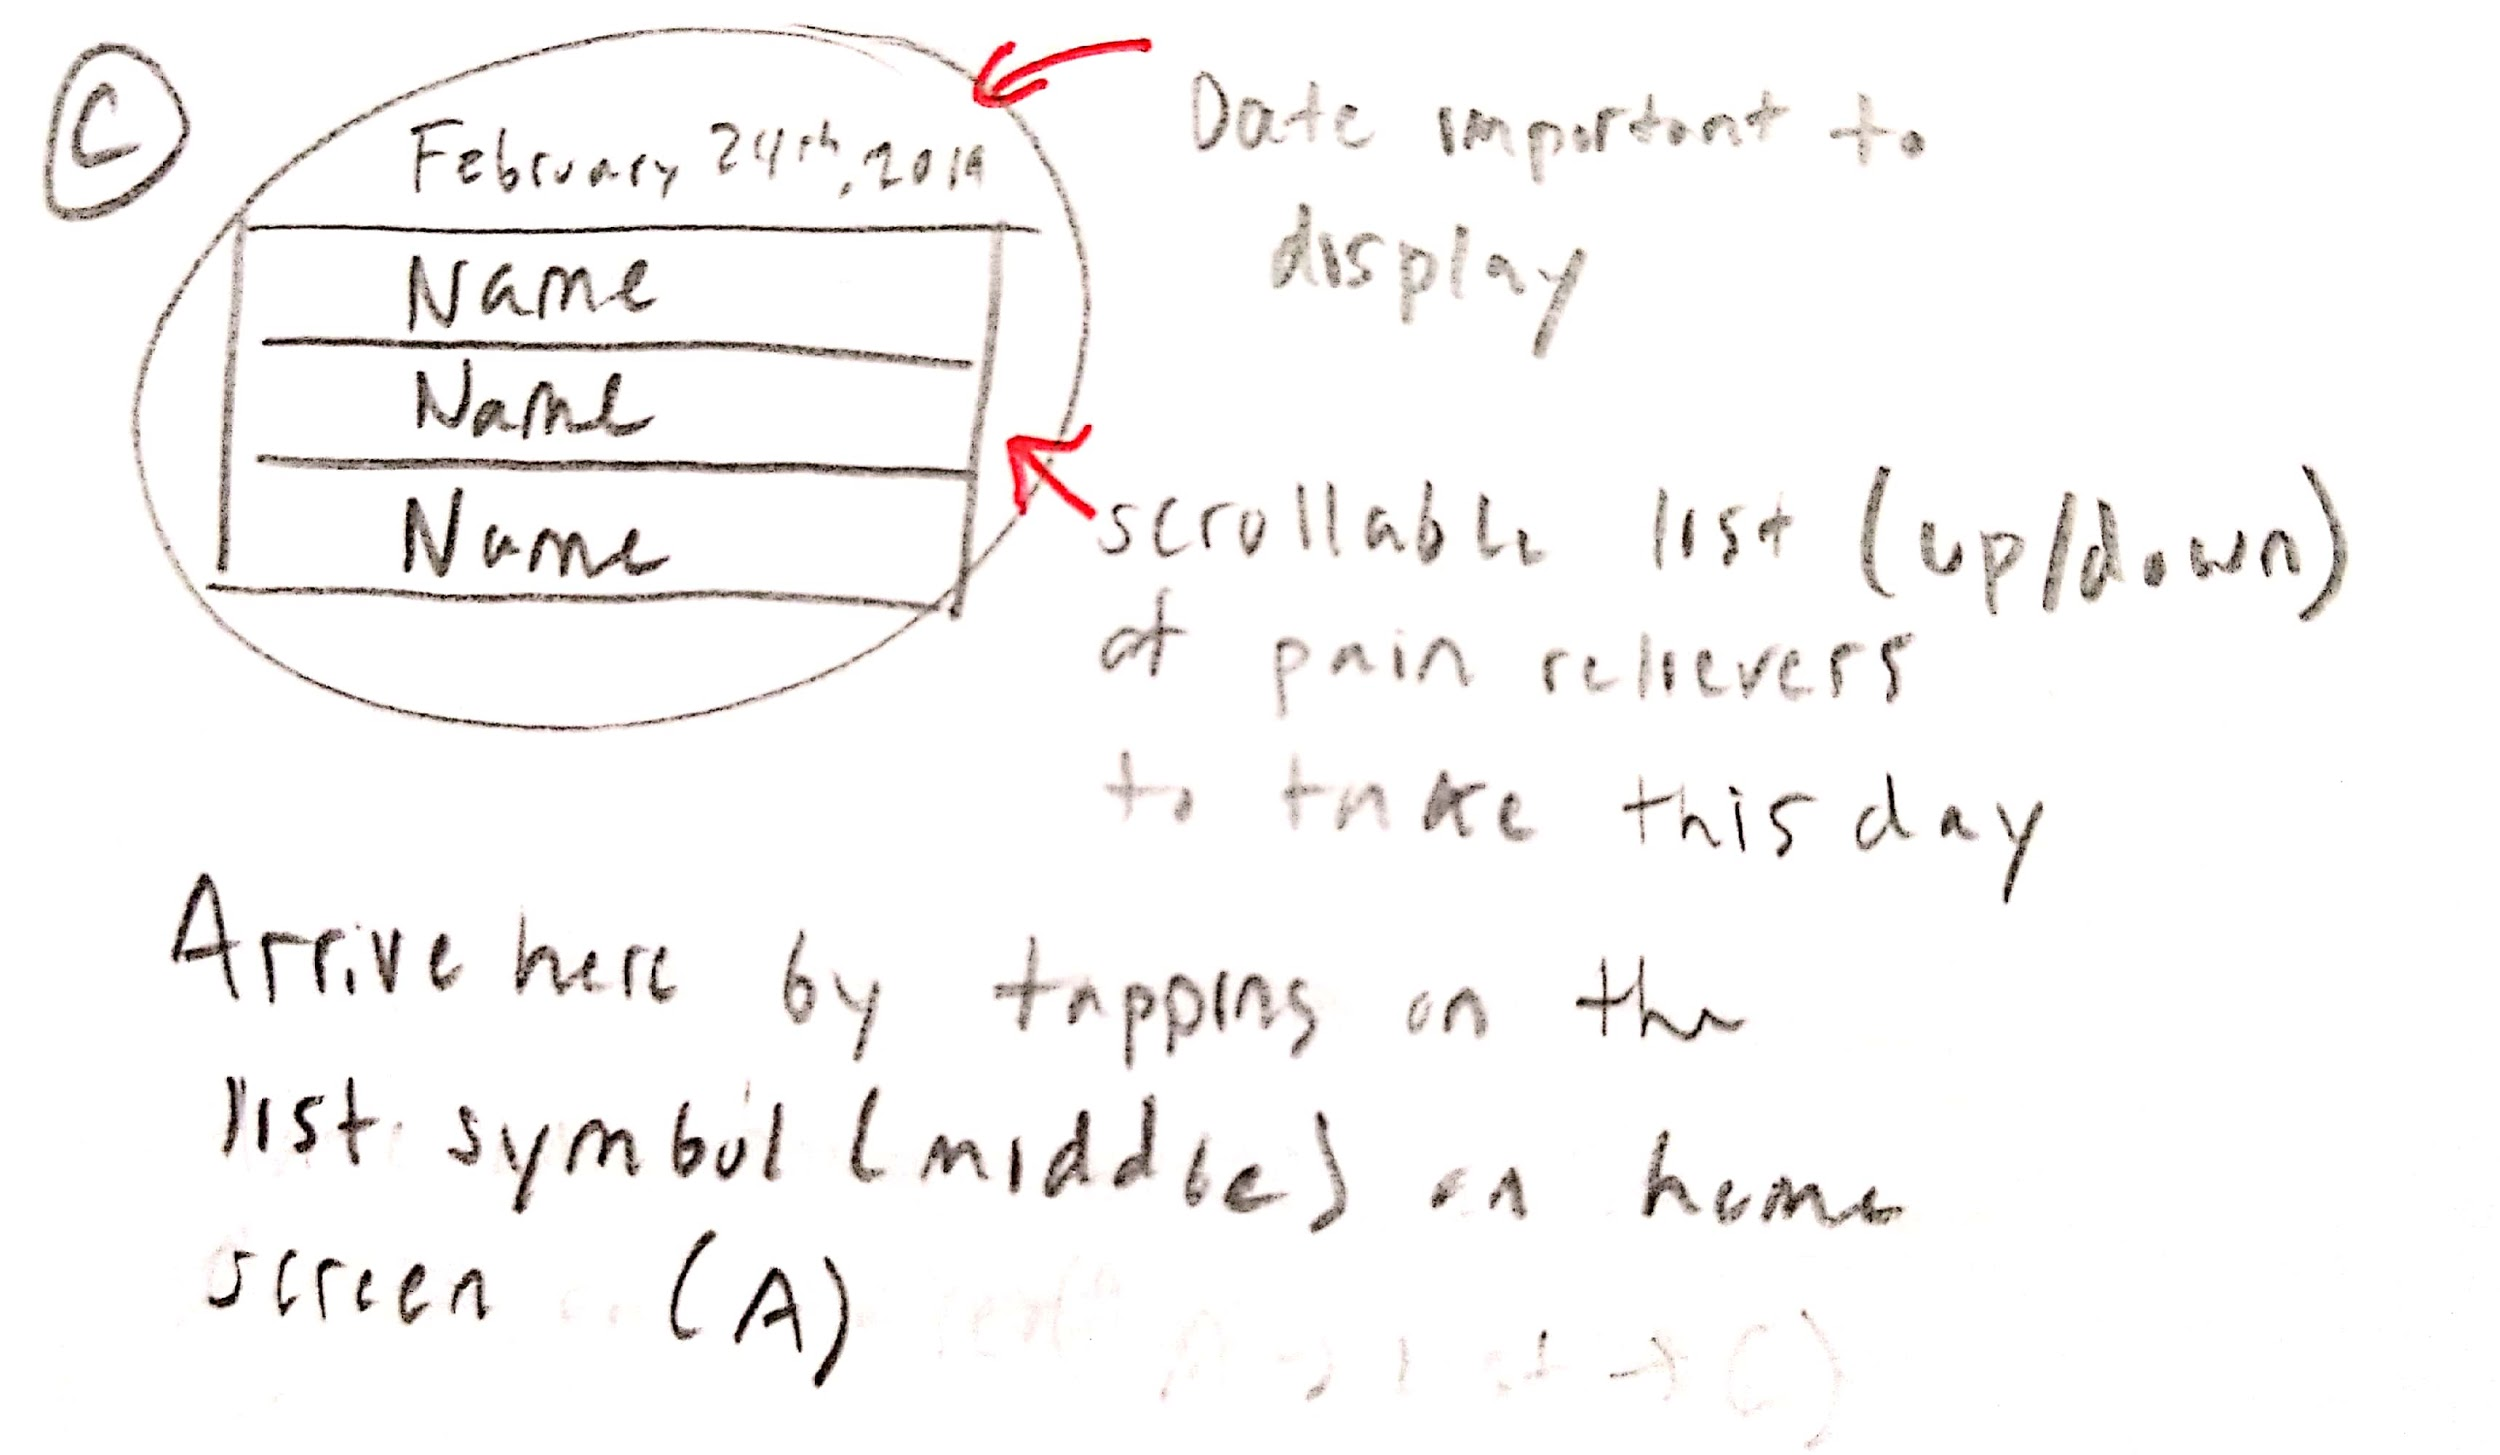 C
February 24th, 2019
Name
Name
Name
Date important to
display
scrollable list (up/down)
of pain relievers
to take this day
Arrive here by tapping on the
list symbol (middle) on home
screen (A)